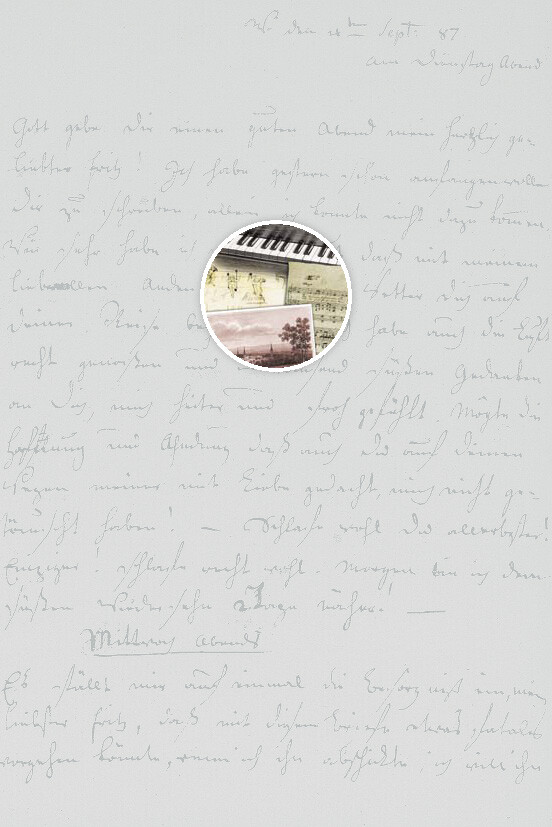 den 18ten Sept: 87
am Dienstag Abend
Gott gebe dir einen guten Abend mein herzlich ge-
liebter Fritz! Ich habe gestern schon anfangen wollen
Dir zu schreiben, allein ich konnte nicht dazu kommen.
Wie sehr habe ich daß mit meinem
liebevollen Anden Wetter dich auf
deiner Reise habe auch die Luft
recht genossen und süßen Gedanken
an Dich, mich heiter und froh gefühlt. Möge die
Hoffnung und Ahndung daß auch du auf deinen
Wegen meiner mit Liebe gedacht, mich nicht ge-
täuscht haben! — Schlafe wohl du allerbester!
Einziger! schlafe recht wohl. Morgen bin ich dem
süßen Wiedersehn 2 Tage näher! —
Mittwoch Abends
Es fällt mir auf einmal die Besorgniß ein, mein
liebster Fritz, daß mit diesem Briefe etwas fatales
vorgehen könnte, wenn ich ihn abschickte, ich will ihn